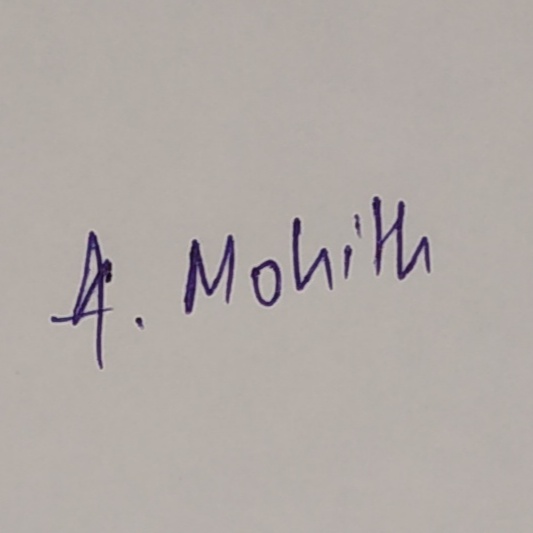 A. Mohith